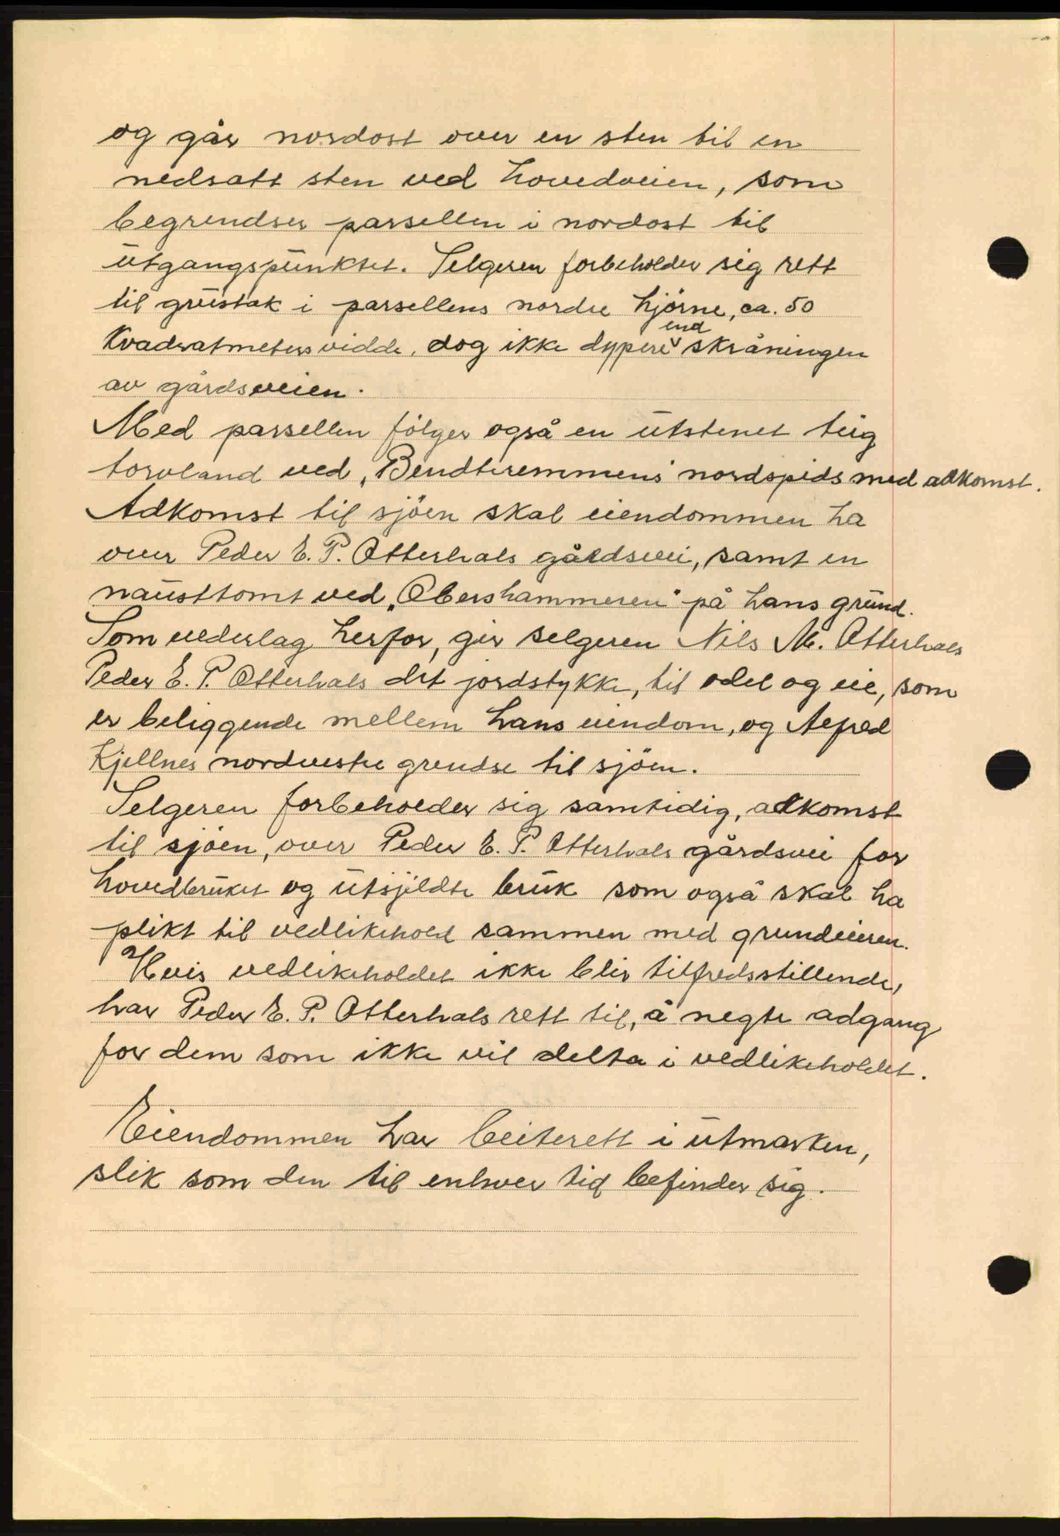 og går nordost over en sten til en
nedsatt sten ved hovedveien, som
begrendser parsellen i nordost til
utgangspunktet. Selgeren forbeholder sig rett
til grustak i parsellens nordre hjörne, ca. 50
Kvadratmeters vidde, dog ikke dypere end skråningen
av gårdsveien.
Med parsellen fölger også en utstenet teig
torvland ved „Bendtremmens" nordspids med adkomst.
Adkomst til sjöen skal eiendommen ha
over Peder E. P. Otterhals gårdsvei, samt en
nausttomt ved „Obershammeren" på hans grund.
Som vederlag herfor, gir selgeren Nils M. Otterhals
Peder E. P. Otterhals det jordstykke, til odel og eie, som
er beliggende mellem hans eiendom, og Alfred
Kjellnes nordvestre grendse til sjöen.
Selgeren forbeholder sig samtidig, adkomst
til sjöen, over Peder E. P. Otterhals gårdsvei for
hovedbruket og utsjildte bruk som også skal ha
plikt til vedlikehold sammen med grundeieren.
Hvis vedlikeholdet ikke blir tilfredsstillende,
har Peder E. P. Otterhals rett til, å negte adgang
for dem som ikke vil delta i vedlikeholdet.
Eiendommen har beiterett i utmarken,
slik som den til enhver tid befinder sig.